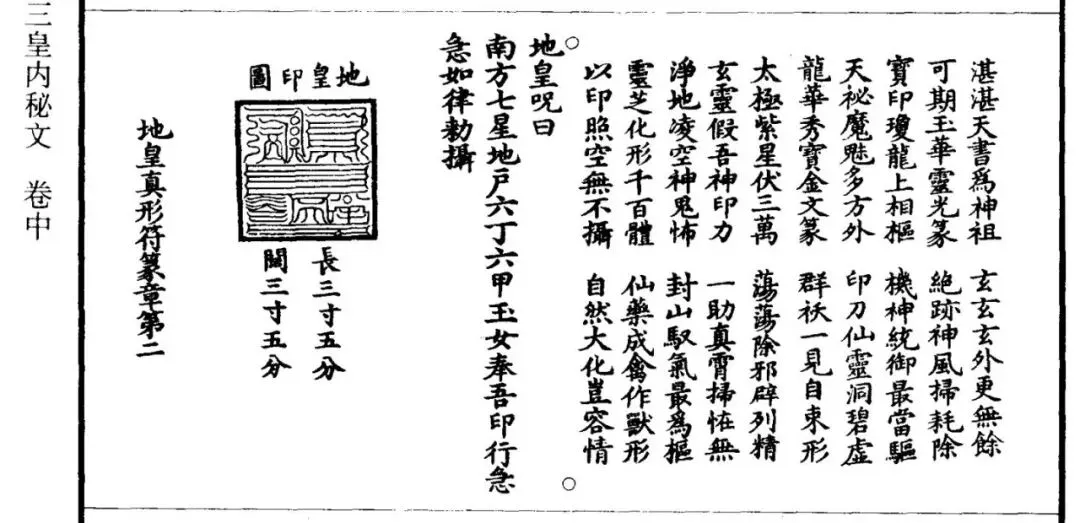 湛湛天書爲神祖　玄玄玄外更無餘
可期玉華靈光篆　絕跡神風掃耗除
寶印瓊龍上相樞　機神統御最當驅
天祕魔魅多方外　印刀仙靈洞碧虛
龍華秀寶金文篆　群祅一見自束形
太極紫星伏三萬　蕩蕩除邪辟列精
玄靈假吾神印力　一助真霄掃恠無
淨地凌空神鬼怖　封山馭氣最爲樞
靈芝化形千百體　仙藥成禽作獸形
以印照空無不攝　自然大化豈容情
地皇呪曰
南方七星地戶六丁六甲玉女奉吾印行急
急如律勅攝
地皇印圖
長三寸五分
闊三寸五分
地皇真形符篆章第二
三皇内秘文　卷中